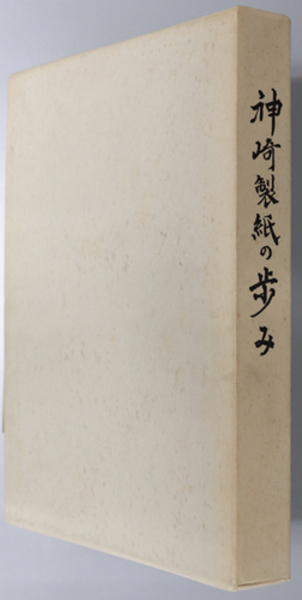 神崎製紙の歩み